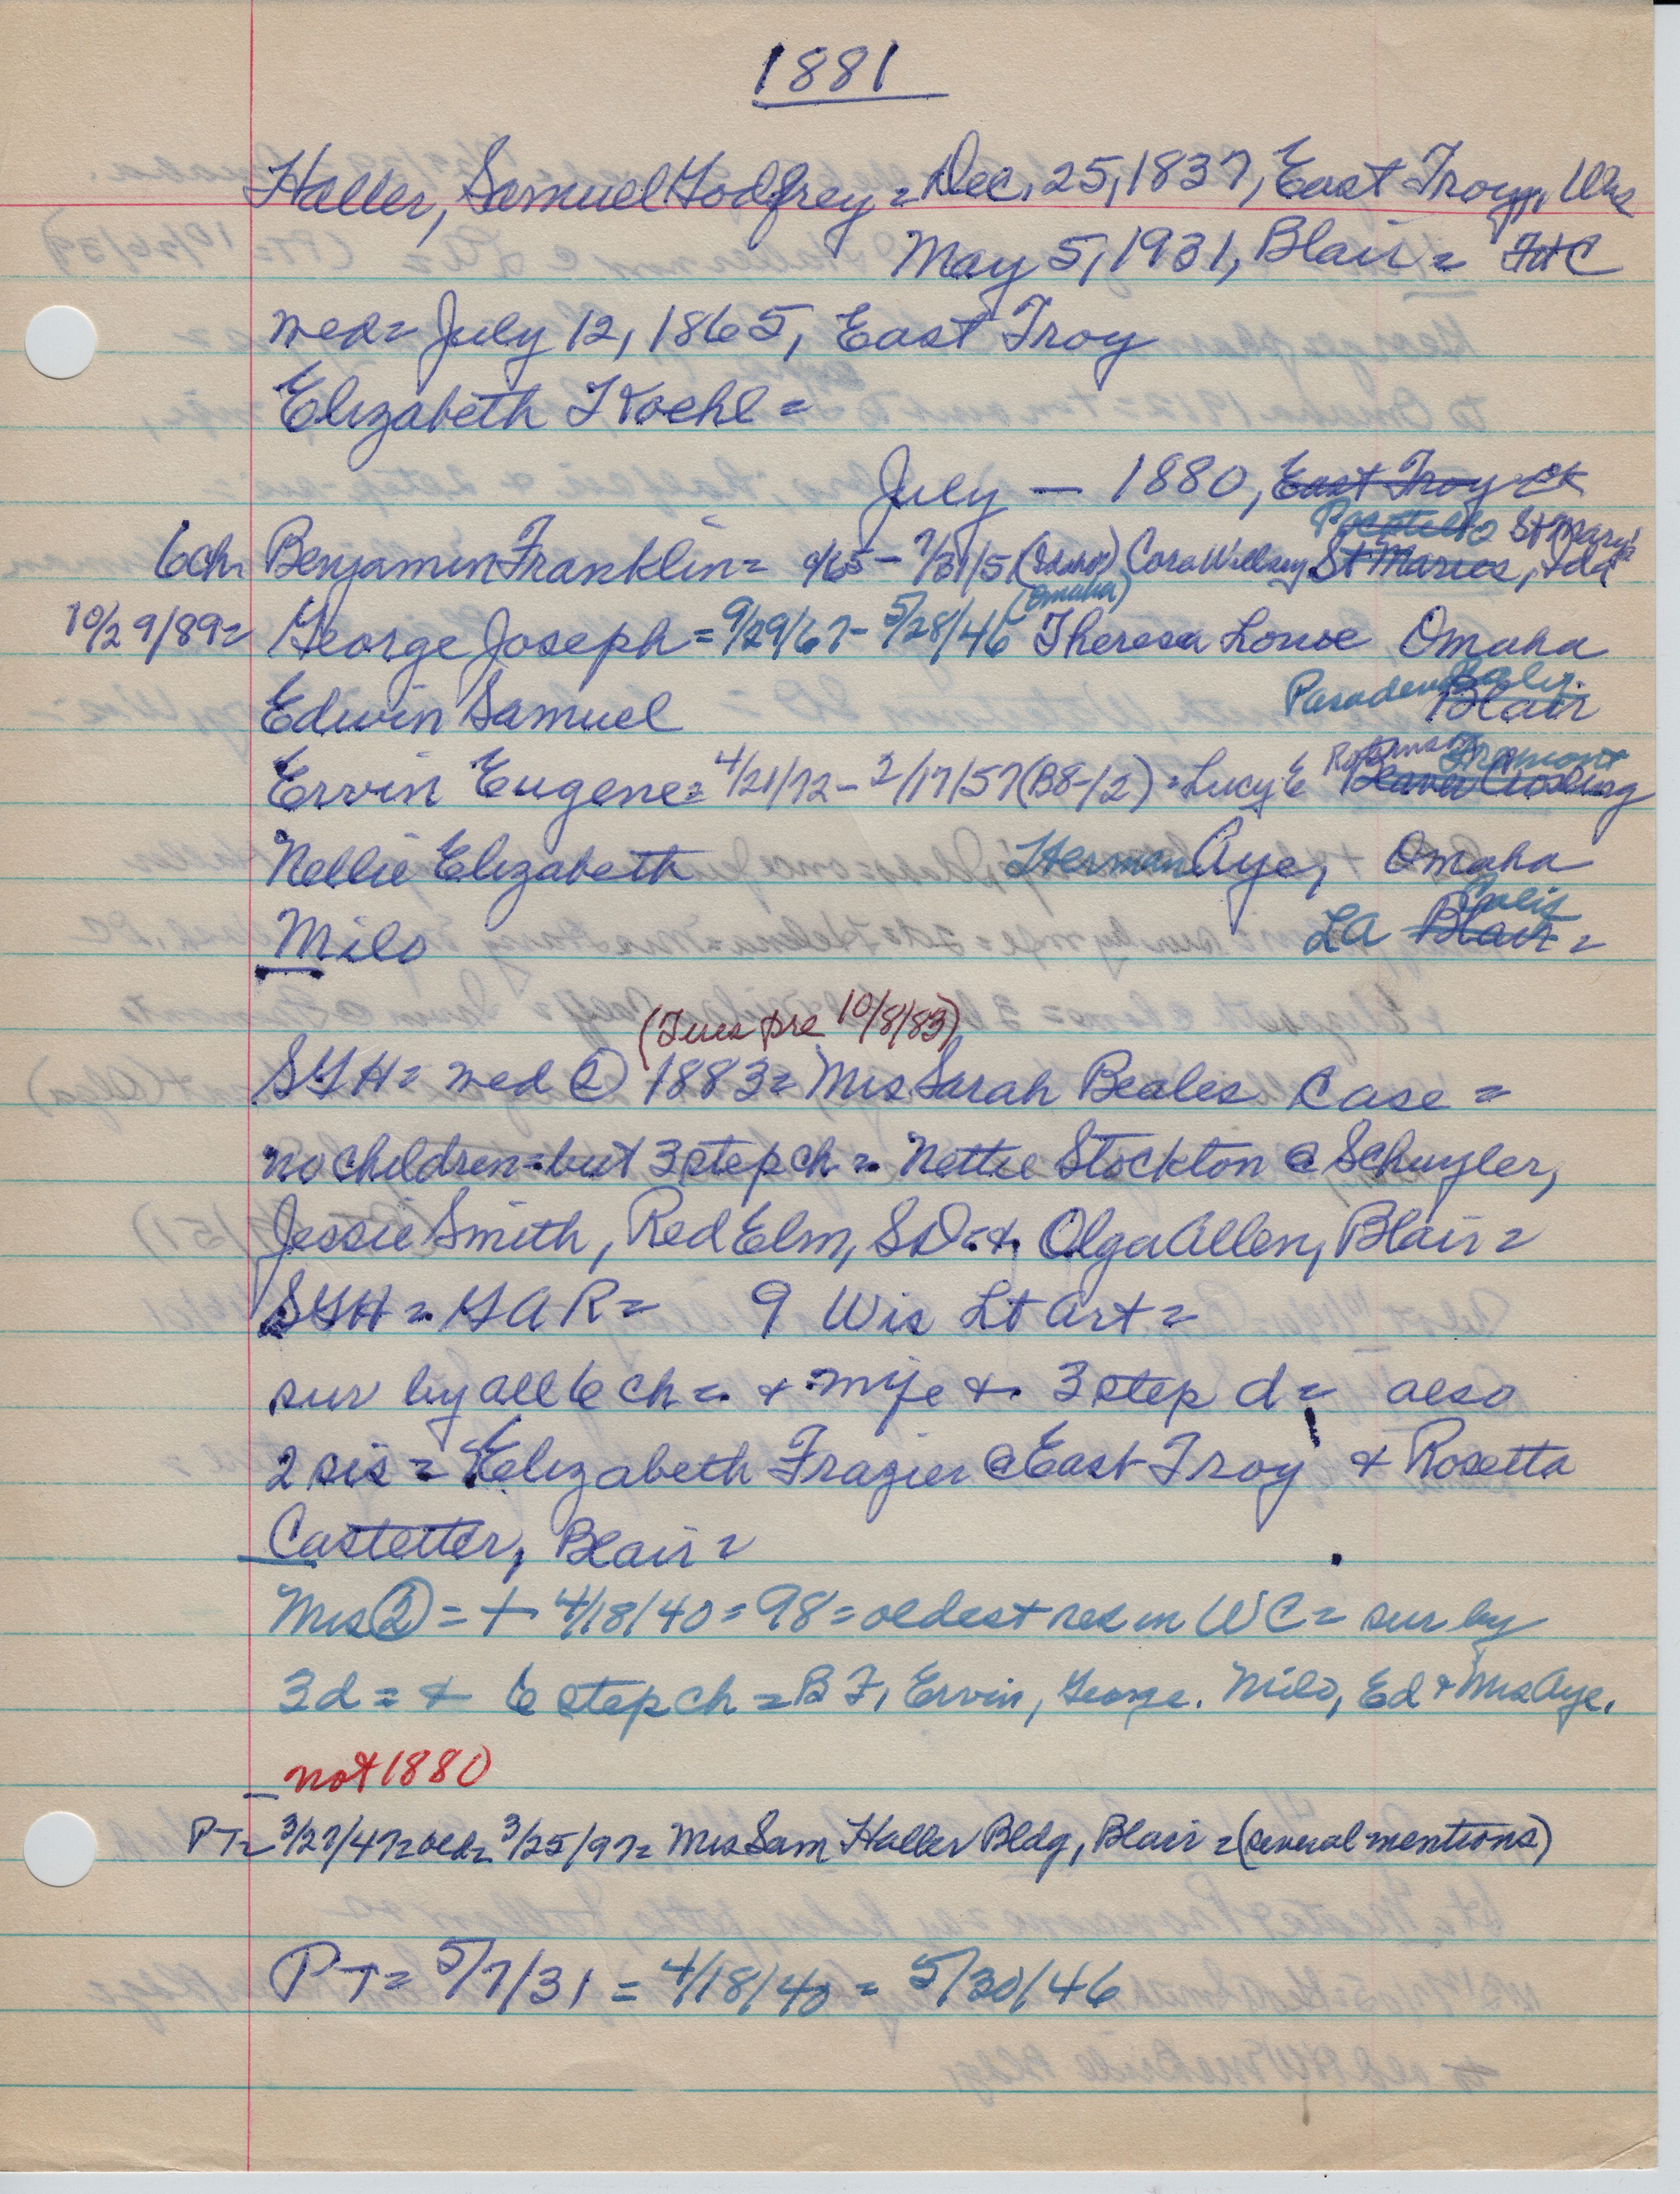 1881
Haller, Samuel Godfrey = Dec. 25, 1837, East Troy, Wis
May 5, 1931, Blair =
med = July 12, 1865, East Troy
Elizabeth Koehl =
July — 1880, East Troy
Pocatello St Mary's
6 ch Benjamin Franklin = (Idaho) Cora Willsey St Maries, Ida
(Omaha)
10/29/89 = George Joseph = 9/29/67 - 5/28/46 Theresa Lowe Omaha
Pasadena Calif.
Edwin Samuel Blair
Fremont
Ervin Eugene = 4/21/72 - 2/17/57 (B8-12) = Lucy E Beaver Crossing
Nellie Elizabeth Herman Aye, Omaha
Calif
Milo LA Blair =
(Tues pre 10/8/83)
SGH = med ② 1883 = Mrs Sarah Beales Case =
no children = but 3 step ch = Nettie Stockton @ Schuyler,
Jessie Smith, Red Elm, SD = + Olga Allen, Blair =
SGH = GAR = 9 Wis Lt Art =
sur by all 6 ch = + mife + 3 step d = also
2 sis = Elizabeth Frazier @ East Troy + Rosetta
Castetter, Blair =
Mrs ② = + 4/18/40 = 98 = oldest res in WC = sur by
3d = + 6 step ch = B F, Ervin, George. Milo, Ed + Mrs Aye.
not 1880
PT = 3/27/47 = old = 3/25/97 = Mrs Sam Haller Bldg, Blair = (several mentions)
PT = 5/7/31 = 4/18/40 = 5/30/46